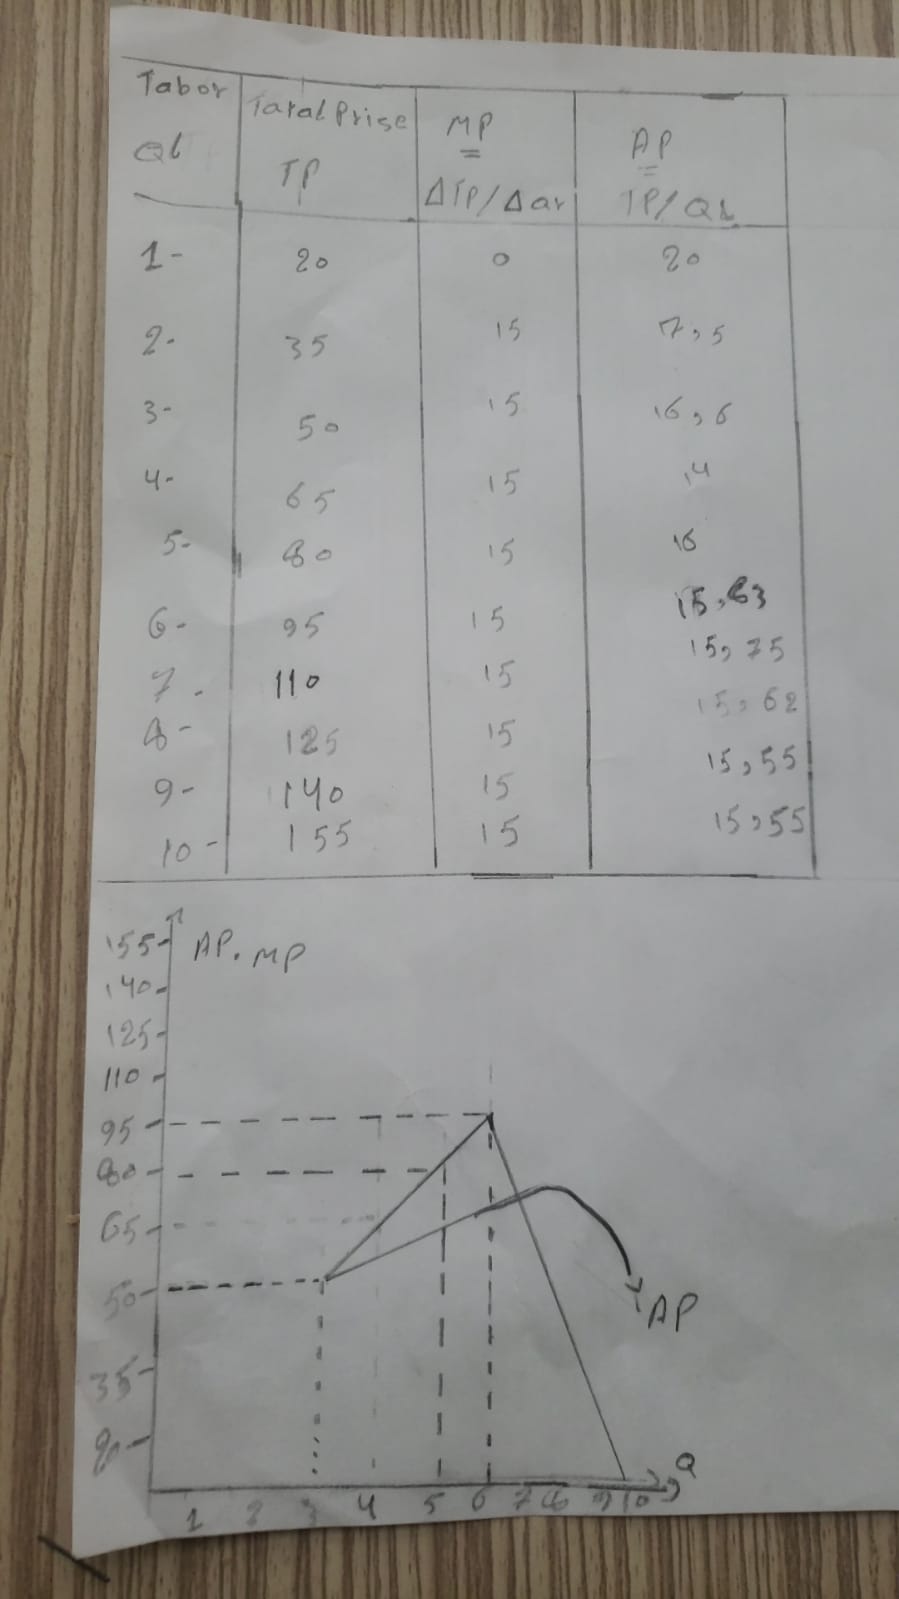 Tabor Total Prise MP AP
Ql TP ΔTP/Δar TP/Ql
1- 20 0 20
2- 35 15 7,5
3- 50 15 16,6
4- 65 15 14
5- 80 15 16
6- 95 15 15,83
7- 110 15 15,75
8- 125 15 15,62
9- 140 15 15,55
10- 155 15 15,55
AP. MP
155
140
125
110
95
80
65
50
AP
35
Q
1 2 3 4 5 6 7 8 9 10